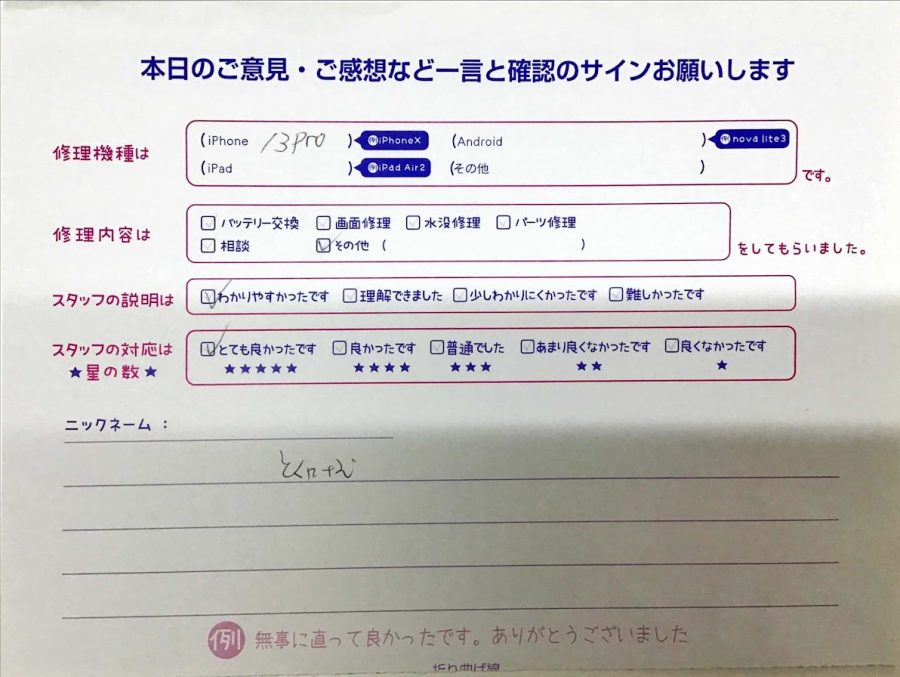 本日のご意見・ご感想など一言と確認のサインお願いします
修理機種は
(iPhone 13Pro ) 例iPhoneX (Android ) 例nova lite3
(iPad ) 例iPad Air2 (その他 )
です。
修理内容は
バッテリー交換 画面修理 水没修理 パーツ修理
相談 その他 ( )
をしてもらいました。
スタッフの説明は
わかりやすかったです 理解できました 少しわかりにくかったです 難しかったです
スタッフの対応は
とても良かったです 良かったです 普通でした あまり良くなかったです 良くなかったです
★星の数★
★★★★★ ★★★★ ★★★ ★★ ★
ニックネーム：
例 無事に直って良かったです。ありがとうございました
折り曲げ線